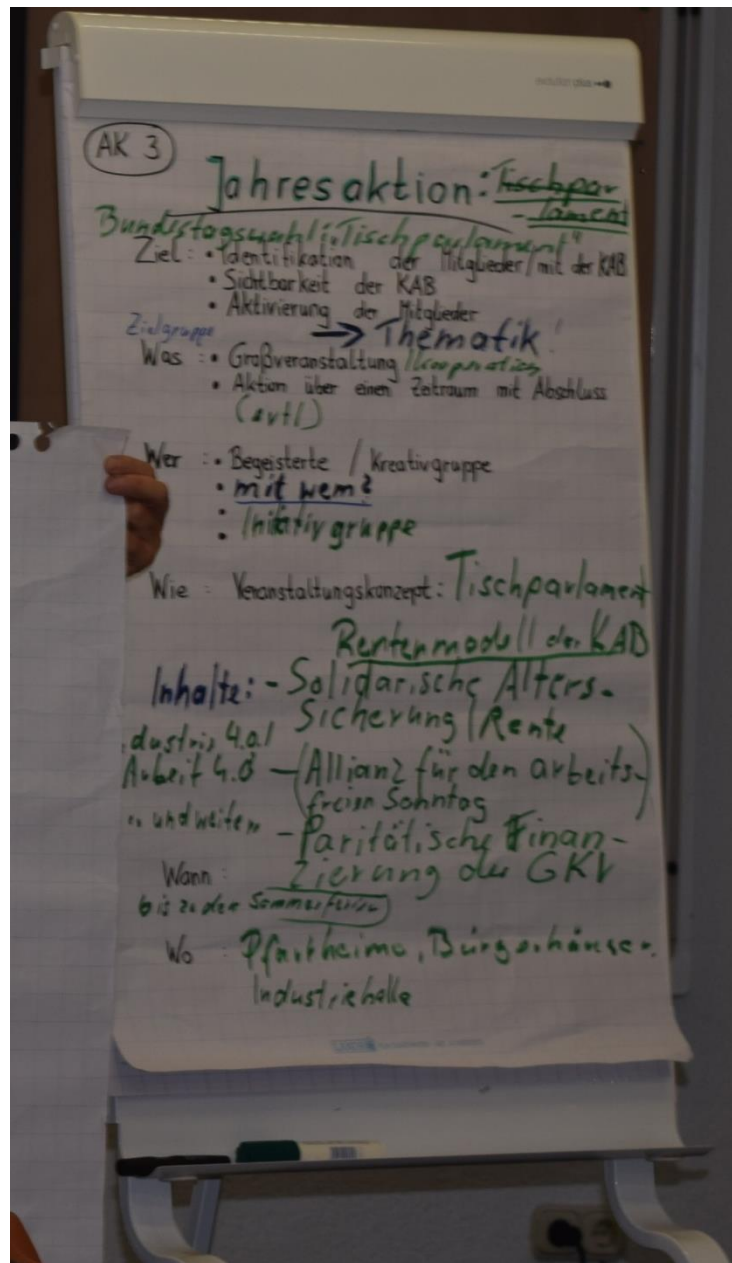 AK 3
Jahresaktion: Tischpar
- lament
Bundestagswahl: "Tischparlament"
Ziel: • Identifikation der Mitglieder / mit der KAB
• Sichtbarkeit der KAB
• Aktivierung der Mitglieder
→ Thematik!
Zielgruppe
Was : • Großveranstaltung / Kooperation
• Aktion über einen Zeitraum mit Abschluss
(evtl)
Wer : • Begeisterte / Kreativgruppe
• mit wem?
• Initiativgruppe
Wie : Veranstaltungskonzept: Tischparlament
Rentenmodell der KAB
Inhalte: - Solidarische Alters-
Sicherung / Rente
dustrie 4.0 /
Arbeit 4.0 - (Allianz für den arbeits-
freien Sonntag)
" und weitere - Paritätische Finan-
zierung der GKV
Wann :
bis zu den Sommerferien
Wo : Pfarrheime, Bürgerhäuser.
Industriehalle